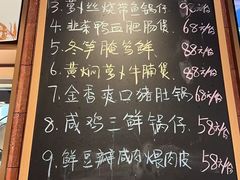 3.萝卜丝烧带鱼锅仔 98元/份
4.韭菜鸭血肥肠煲 68元/份
5.冬笋腌笃鲜 88元/份
6.黄焖萝卜牛腩煲 88元/份
7.金香爽口猪肚锅 68元/份
8.咸鸡三鲜锅仔 58元/份
9.鲜豆瓣咸肉煨肉皮 58元/份